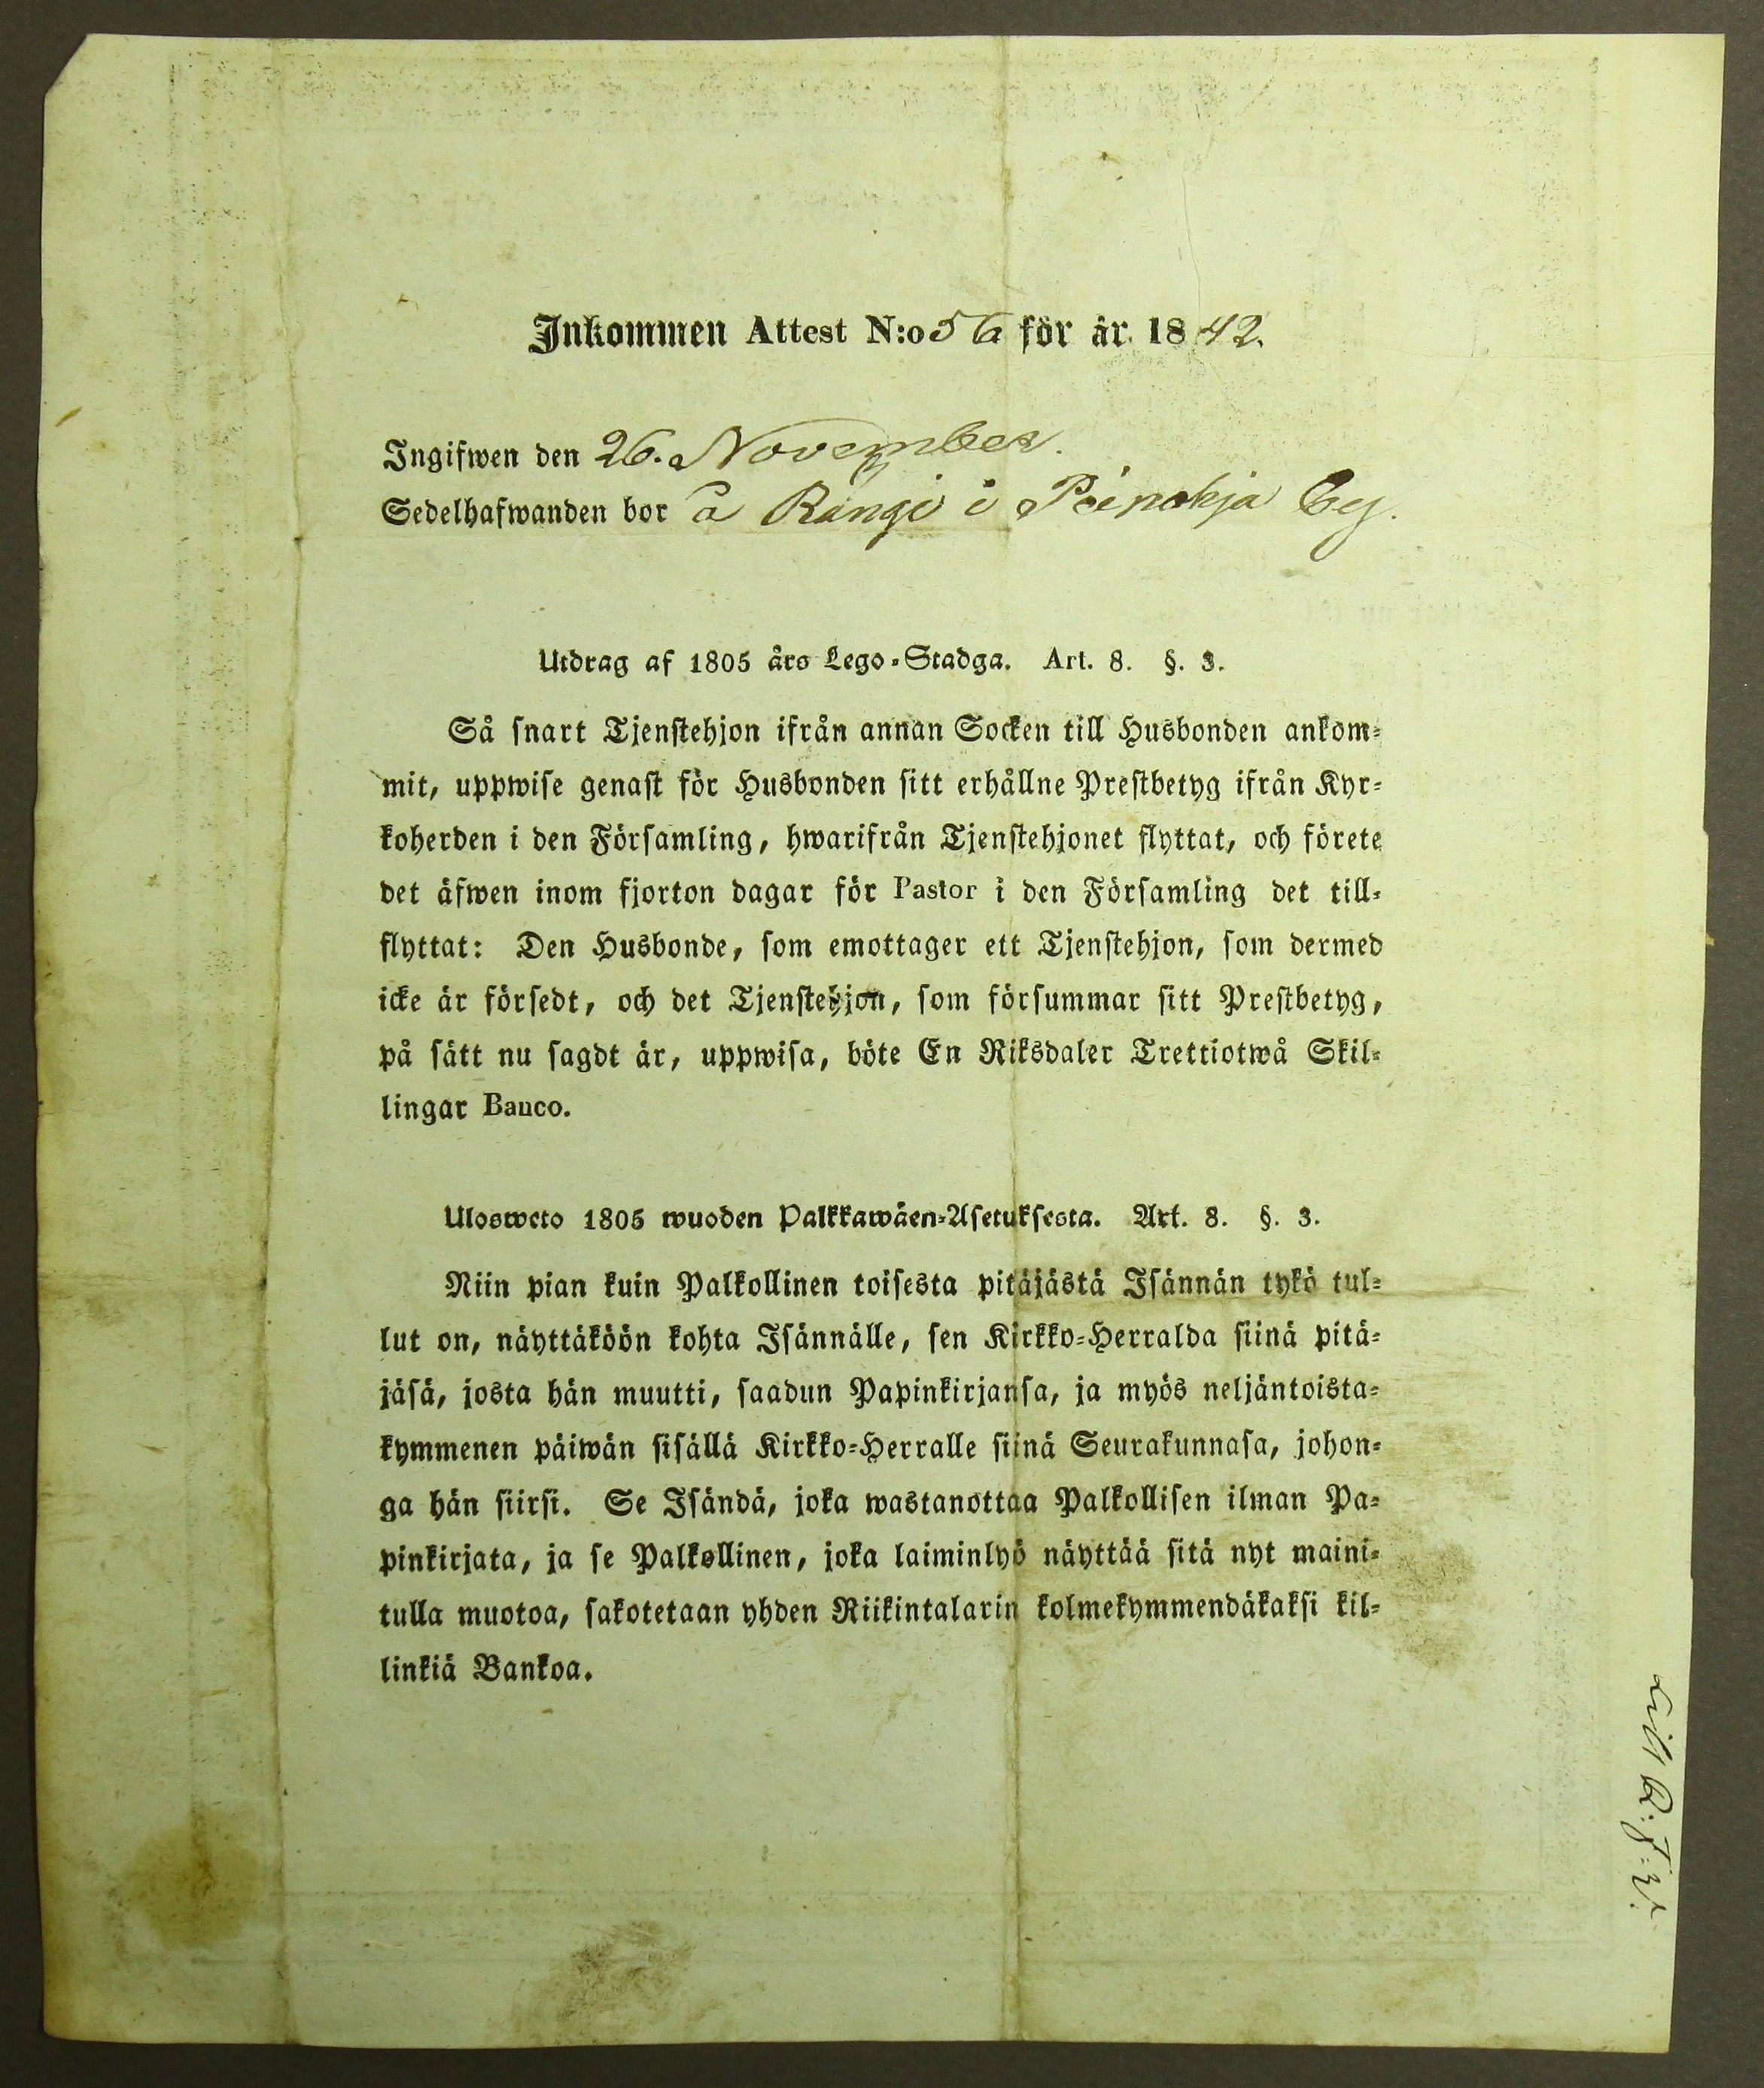 Inkommen Attest N:o 56 för år 1842.
Ingifwen den 26. November.
Sedelhafwanden bor å Rängi i Peinokja by.
Utdrag af 1805 års Lego-Stadga. Art. 8. §. 3.
Så snart Tjenstehjon ifrån annan Socken till Husbonden ankom-
mit, uppwise genast för Husbonden sitt erhållne Prestbetyg ifrån Kyr-
koherden i den Församling, hwarifrån Tjenstehjonet flyttat, och förete
det äfwen inom fjorton dagar för Pastor i den Församling det till-
flyttat: Den Husbonde, som emottager ett Tjenstehjon, som dermed
icke är försedt, och det Tjenstehjon, som försummar sitt Prestbetyg,
på sätt nu sagdt är, uppwisa, böte En Riksdaler Trettiotwå Skil-
lingar Banco.
Ulosweto 1805 wuoden Palkkawäen-Asetuksesta. Art. 8. §. 3.
Niin pian kuin Palkollinen toisesta pitäjästä Isännän tykö tul-
lut on, näyttäköön kohta Isännälle, sen Kirkko-Herralda siinä pitä-
jäsä, josta hän muutti, saadun Papinkirjansa, ja myös neljäntoista-
kymmenen päiwän sisällä Kirkko-Herralle siinä Seurakunnasa, johon-
ga hän siirsi. Se Isändä, joka wastanottaa Palkollisen ilman Pa-
pinkirjata, ja se Palkollinen, joka laiminlyö näyttää sitä nyt maini-
tulla muotoa, sakotetaan yhden Riikintalarin kolmekymmendäkaksi kil-
linkiä Bankoa.